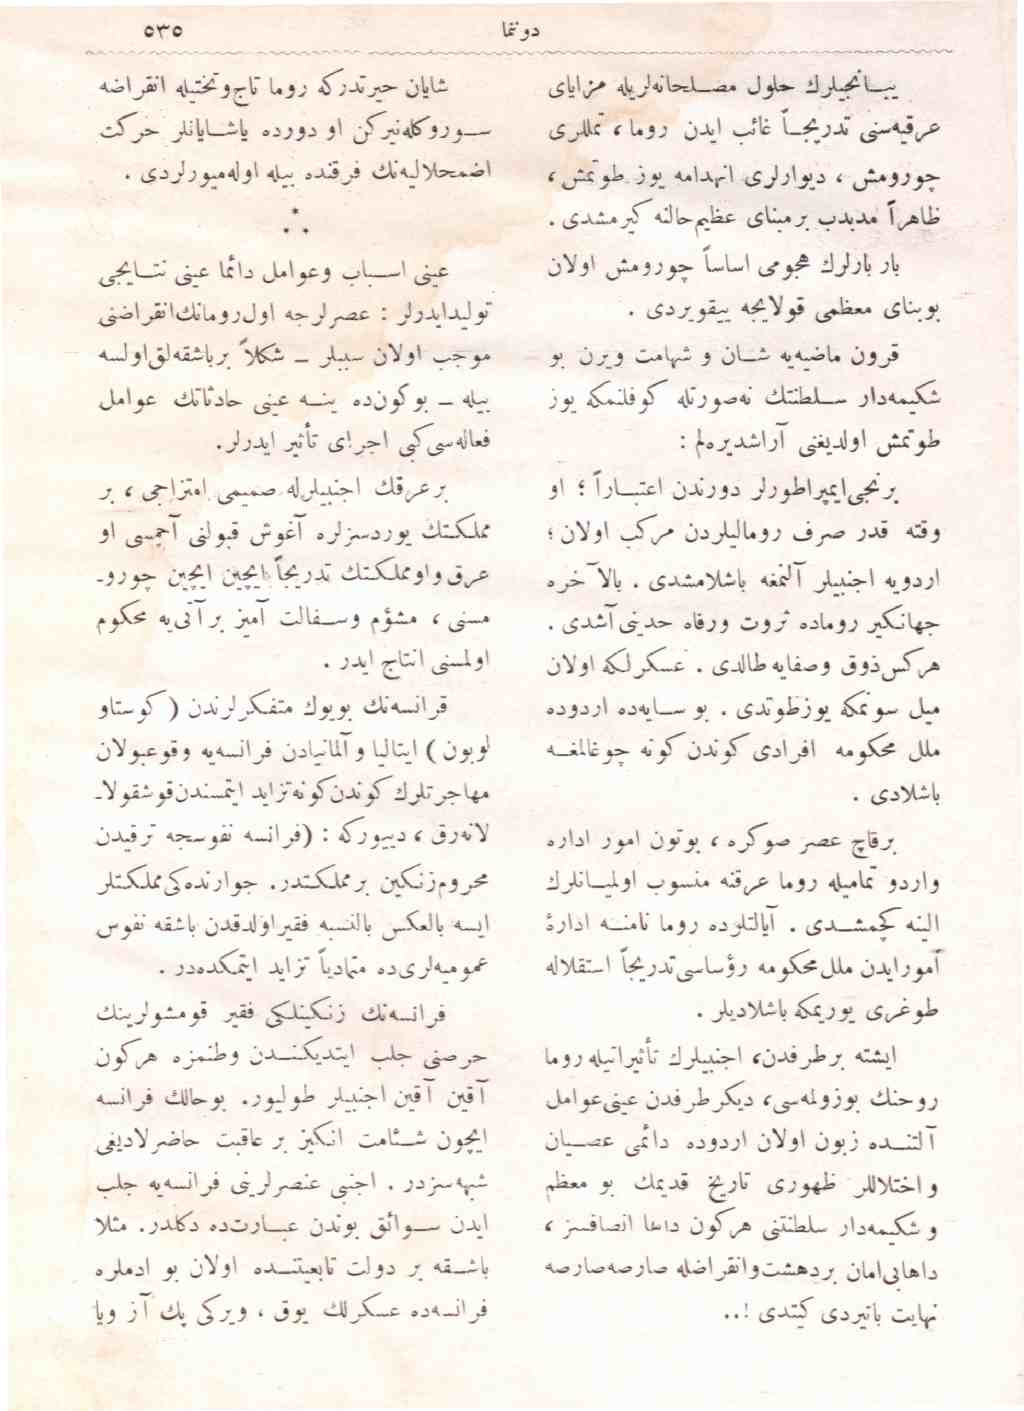 دوننما
٥٣٥
يبانجيلرك حلول مصلحانه‌لريله مزاياى
عرقيه‌سنى تدريجاً غائب ايدن روما ، تمللرى
چورومش ، ديوارلرى انهدامه يوز طوتمش ،
ظاهراً مدبدب بر مبناى عظيم حالنه كيرمشدى .
بار بارلرك هجومى اساساً چورومش اولان
بو بناى معظمى قولايجه ييقويردى .
قرون ماضيه‌يه شان و شهامت ويرن بو
شكيمه‌دار سلطنتك نه‌صورتله كوفلنمكه يوز
طوتمش اولديغنى آراشديره‌لم :
برنجى ايمپراطورلر دورندن اعتباراً ؛ او
وقته قدر صرف روماليلردن مركب اولان ؛
اردويه اجنبيلر آلنمغه باشلامشدى . بالآخره
جهانكير روماده ثروت ورفاه حدينى آشدى .
هركس ذوق وصفايه طالدى . عسكرلكه اولان
ميل سونمكه يوزطوتدى . بو سايه‌ده اردوده
ملل محكومه افرادى كوندن كونه چوغالمغه
باشلادى .
برقاچ عصر صوكره ، بوتون امور اداره
واردو تماميله روما عرقنه منسوب اولميانلرك
الينه كچمشدى . آيالتلرده روما نامنه ادارۀ
امورايدن ملل محكومه رؤساسى تدريجاً استقلاله
طوغرى يوريمكه باشلاديلر .
ايشته برطرفدن، اجنبيلرك تأثيراتيله روما
روحنك بوزولمه‌سى، ديكر طرفدن عينى عوامل
آلتنده زبون اولان اردوده دائمى عصيان
و اختلاللر ظهورى تاريخ قديمك بو معظم
و شكيمه‌دار سلطنتنى هركون داها انصافسز ،
داها بى‌امان بردهشت وانقراضله صارصه صارصه
نهايت باتيردى كيتدى !..
شايان حيرتدركه روما تاج وتختيله انقراضه
سوروكله‌نيركن او دورده ياشايانلر حركت
اضمحلاليه‌نك فرقنده بيله اوله‌ميورلردى .
*
* *
عينى اسباب وعوامل دائما عينى نتايجى
توليدايدرلر : عصرلرجه اول رومانك انقراضنى
موجب اولان سببلر ـ شكلاً برباشقه‌لق اولسه
بيله ـ بوكون‌ده ينه عينى حادثاتك عوامل
فعاله‌سى كبى اجراى تأثير ايدرلر.
برعرقك اجنبيلرله صميمى امتزاجى ، بر
مملكتك يوردسزلره آغوش قبولنى آچمسى او
عرق واومملكتك تدريجاً ايچين ايچين چورو-
مسنى ، مشؤم وسفالت آميز برآتى‌يه محكوم
اولمسنى انتاج ايدر .
فرانسه‌نك بويوك متفكرلرندن ( كوستاو
لوبون ) ايتاليا و آلمانيادن فرانسه‌يه وقوعبولان
مهاجرتلرك كوندن كونه تزايد ايتمسندن قوشقولا-
لانه‌رق ، دييوركه : (فرانسه نفوسجه ترقيدن
محروم زنكين بر مملكتدر. جوارنده‌كى مملكتلر
ايسه بالعكس بالنسبه فقيراولدقدن باشقه نفوس
عموميه‌لرى‌ده متمادياً تزايد ايتمكده‌در .
فرانسه‌نك زنكينلكى فقير قومشولرينك
حرصنى جلب ايتديكندن وطنمزه هركون
آقين آقين اجنبيلر طوليور. بوحالك فرانسه
ايچون شئامت انكيز بر عاقبت حاضرلاديغى
شبهه‌سزدر . اجنبى عنصرلرينى فرانسه‌يه جلب
ايدن سوائق بوندن عبارت‌ده دكلدر. مثلا
باشقه بر دولت تابعيتنده اولان بو ادملره
فرانسه‌ده عسكرلك يوق ، ويركى پك آز ويا